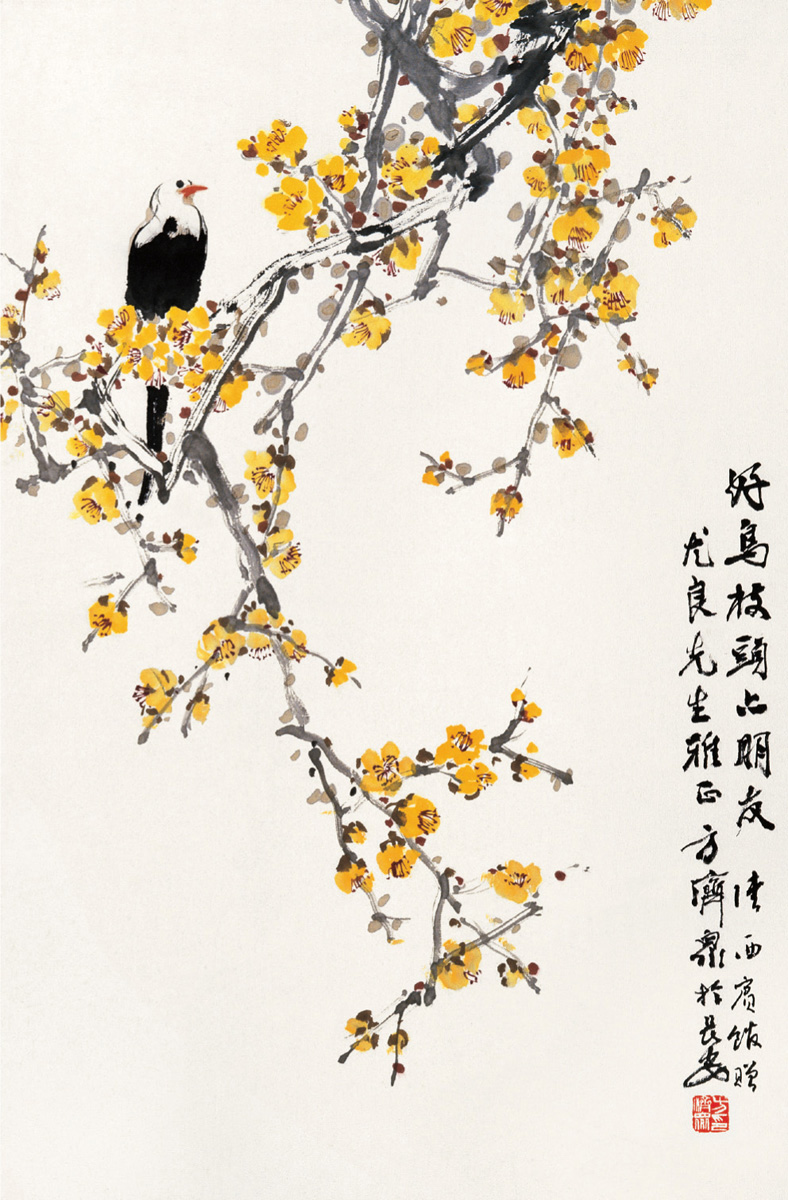 好鳥枝頭亦朋友 陕西賓館贈
尤良先生雅正 方濟衆於長安